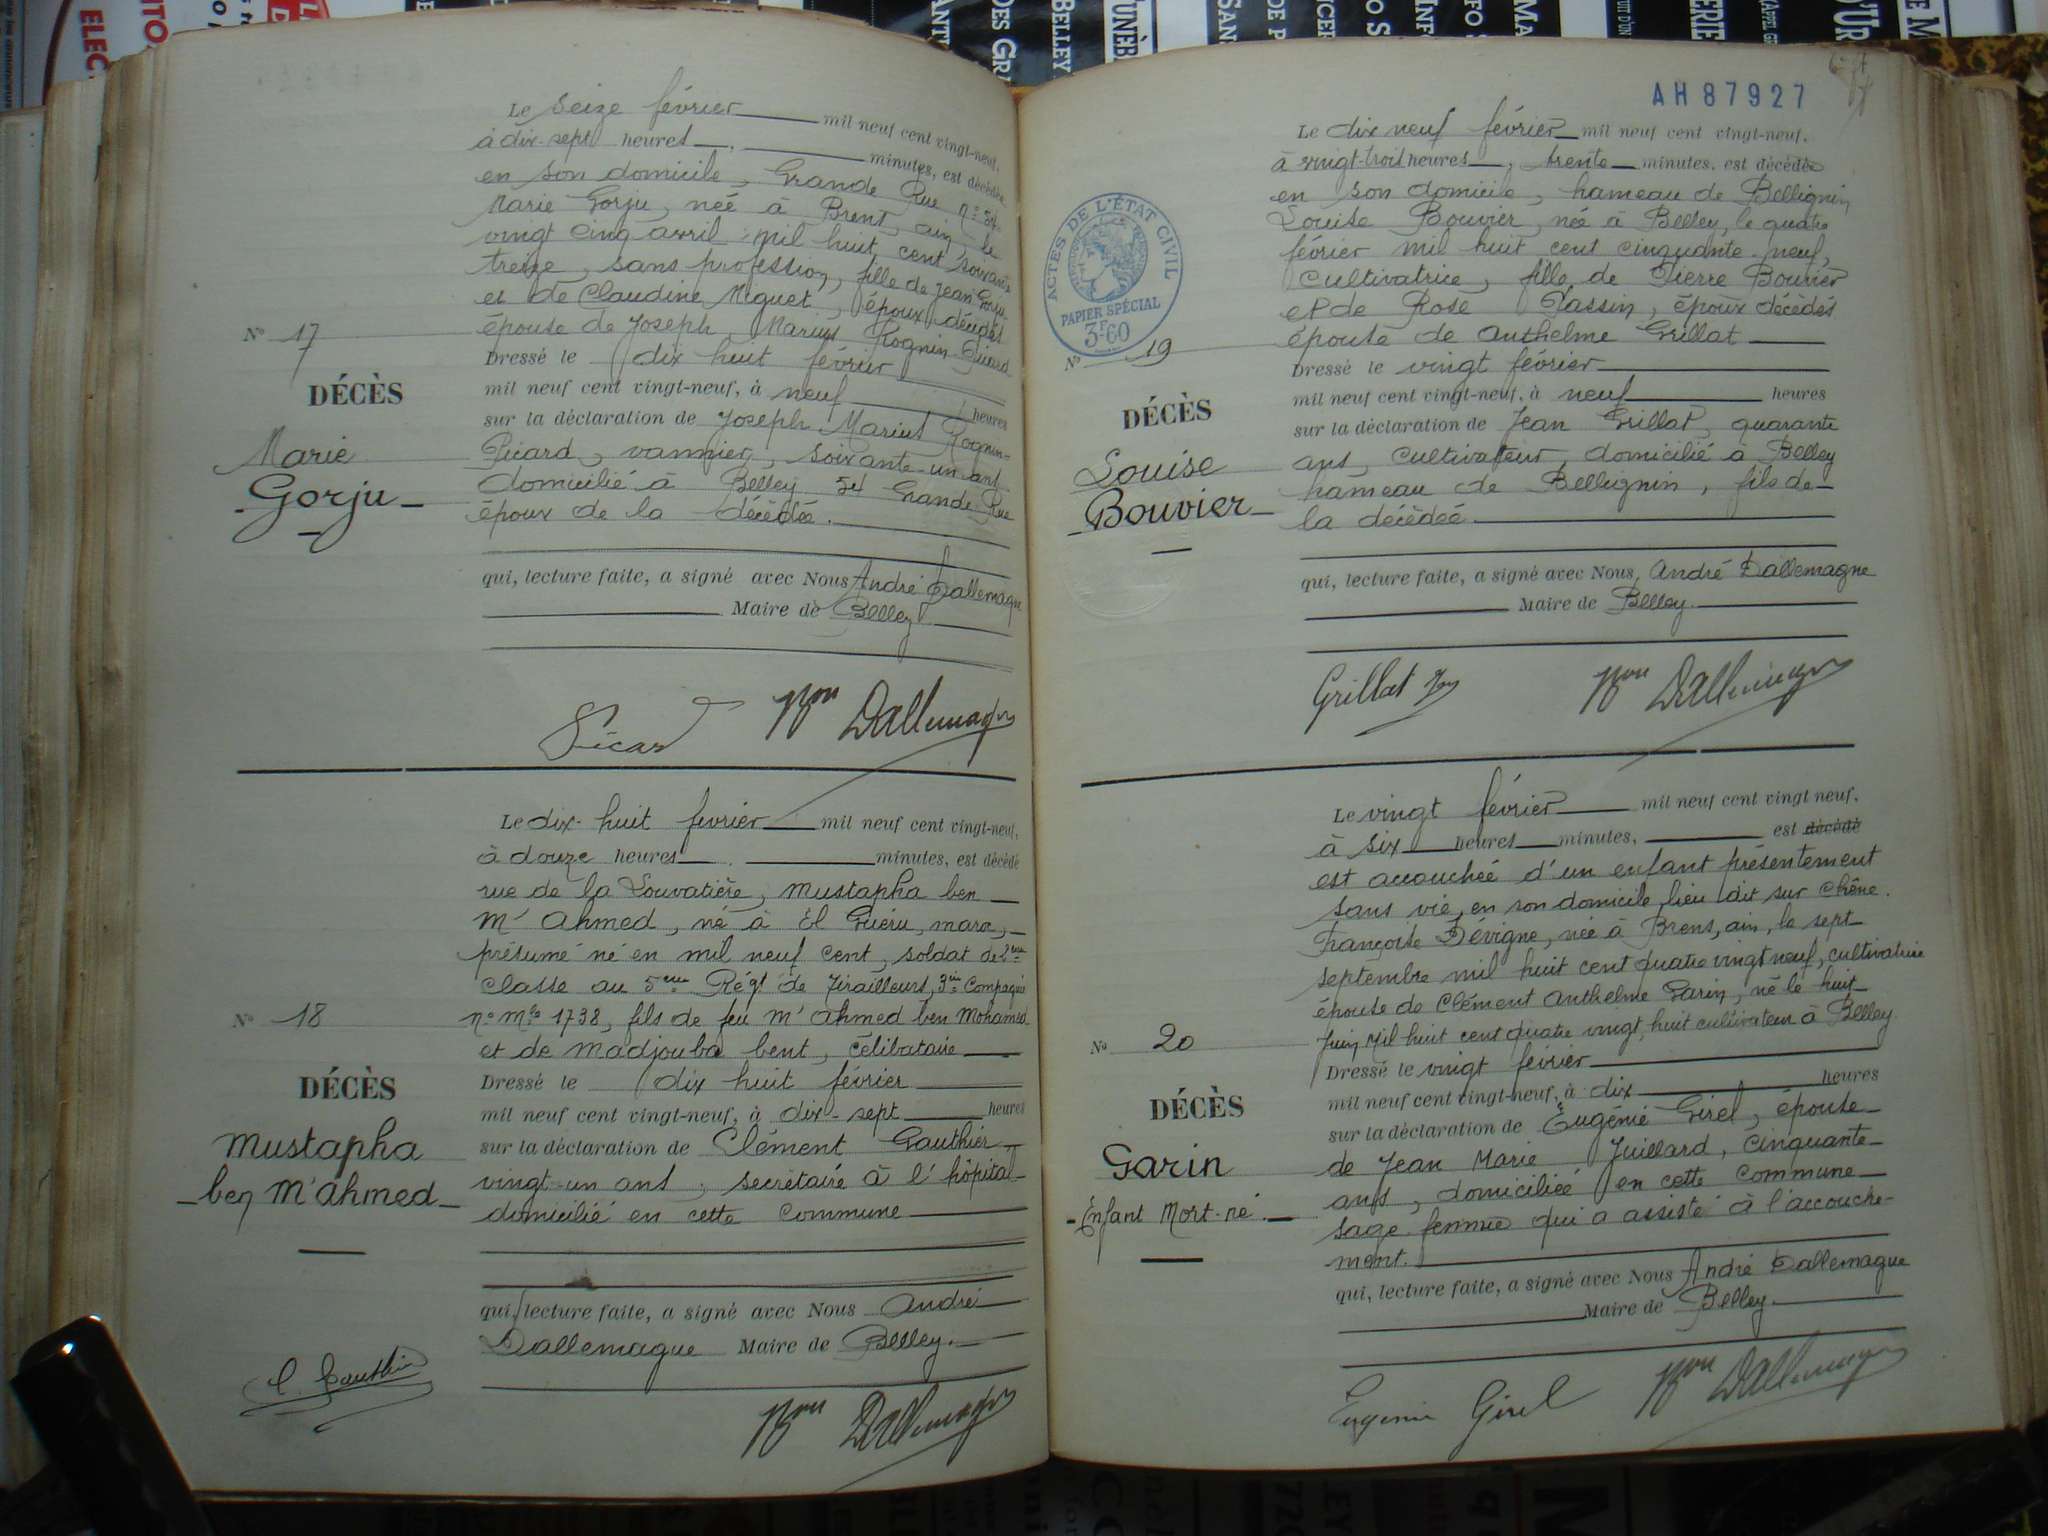 Le Seize février mil neuf cent vingt-neuf,
à dix-sept heures, minutes, est décédée
en son domicile, Grande Rue n° 54
Marie Gorju, née à Brent, ain, le
vingt cinq avril mil huit cent soixante
treize, sans profession, fille de Jean Gorju
et de Claudine Miguet, époux décédés
épouse de Joseph, Marius Rognin-Picard
N° 17
Dressé le dix huit février
DÉCÈS
Marie
Gorju
mil neuf cent vingt-neuf, à neuf heures
sur la déclaration de Joseph Marius Rognin-
Picard, vannier, soixante-un ans
domicilié à Belley 54 Grande Rue
époux de la décédée.
qui, lecture faite, a signé avec Nous André Dallemagne
Maire de Belley.
Picard
Dallemagne
Le dix-huit février mil neuf cent vingt-neuf,
à douze heures, minutes, est décédé
rue de la Louvatière, Mustapha ben
M'Ahmed, né à El Guéru, maroc,
présumé né en mil neuf cent, soldat de 2ème
classe au 5ème Régt de Tirailleurs, 3ème Compagnie
n° Mle 1738, fils de feu M'Ahmed ben Mohamed
et de Madjouba bent, célibataire
N° 18
Dressé le dix huit février
DÉCÈS
Mustapha
ben M'Ahmed
mil neuf cent vingt-neuf, à dix-sept heures
sur la déclaration de Clément Gauthier
vingt-un ans, secrétaire à l'hôpital
domicilié en cette commune
qui, lecture faite, a signé avec Nous André
Dallemagne Maire de Belley.
C. Gauthier
Dallemagne
AH 87927
ACTES DE L'ÉTAT CIVIL
PAPIER SPÉCIAL
3F60
Le dix neuf février mil neuf cent vingt-neuf,
à vingt-trois heures, trente minutes, est décédée
en son domicile, hameau de Bellignin
Louise Bouvier, née à Belley, le quatre
février mil huit cent cinquante-neuf,
Cultivatrice, fille de Pierre Bouvier
et de Rose Passin, époux décédés
épouse de Anthelme Grillat
N° 19
Dressé le vingt février
DÉCÈS
Louise
Bouvier
mil neuf cent vingt-neuf, à neuf heures
sur la déclaration de Jean Grillat, quarante
ans, cultivateur, domicilié à Belley
hameau de Bellignin, fils de
la décédée.
qui, lecture faite, a signé avec Nous, André Dallemagne
Maire de Belley.
Grillat
Dallemagne
Le vingt février mil neuf cent vingt neuf,
à six heures minutes, est décédé
est accouchée d'un enfant présentement
sans vie, en son domicile, lieu dit sur Chêne.
Françoise Dévigne, née à Brens, ain, le sept
septembre mil huit cent quatre vingt neuf, cultivatrice
épouse de Clément Anthelme Garin, né le huit
Juin Mil huit cent quatre vingt, huit cultivateur à Belley
N° 20
Dressé le vingt février
DÉCÈS
Garin
Enfant Mort-né.
mil neuf cent vingt-neuf, à dix heures
sur la déclaration de Eugénie Girel, épouse
de Jean Marie Juillard, cinquante
ans, domiciliée en cette commune
sage-femme qui a assisté à l'accouche-
ment.
qui, lecture faite, a signé avec Nous André Dallemagne
Maire de Belley.
Eugenie Girel
Dallemagne